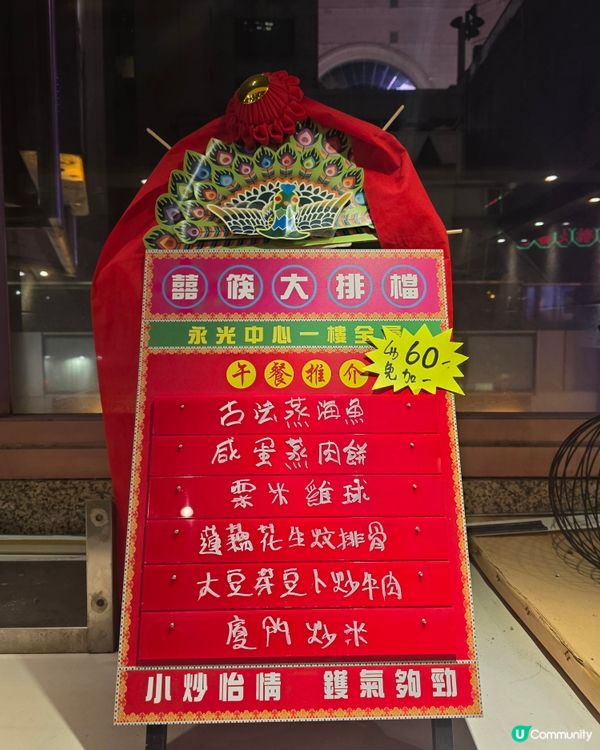 囍筷大排檔
永光中心一樓全層
午餐推介
均60-
免加一
古法蒸海魚
咸蛋蒸肉餅
粟米雞球
蓮藕花生炆排骨
大豆芽豆卜炒牛肉
廈門炒米
小炒怡情 鑊氣夠勁
U Community